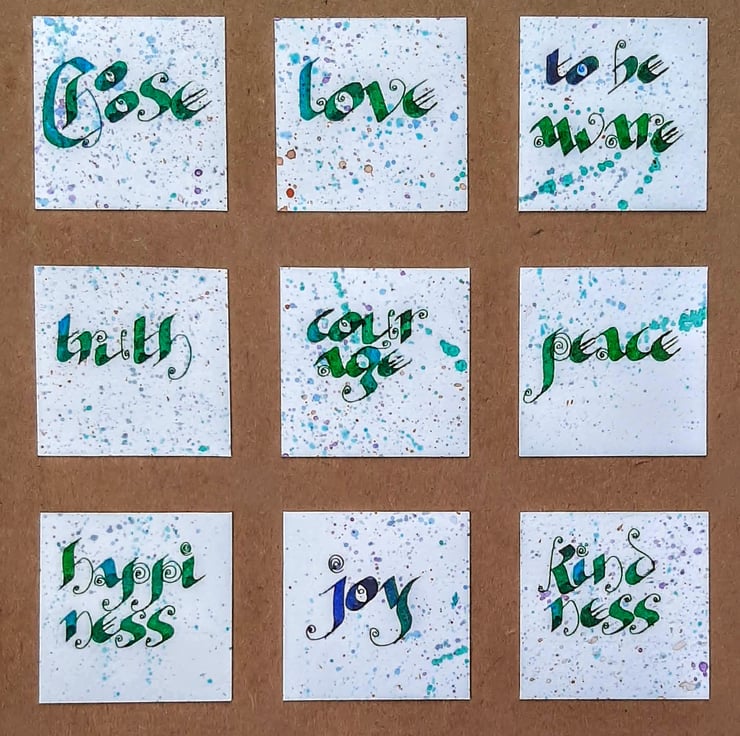 Choose
love
to be
aware
truth
cour
age
peace
happi
ness
joy
kind
ness